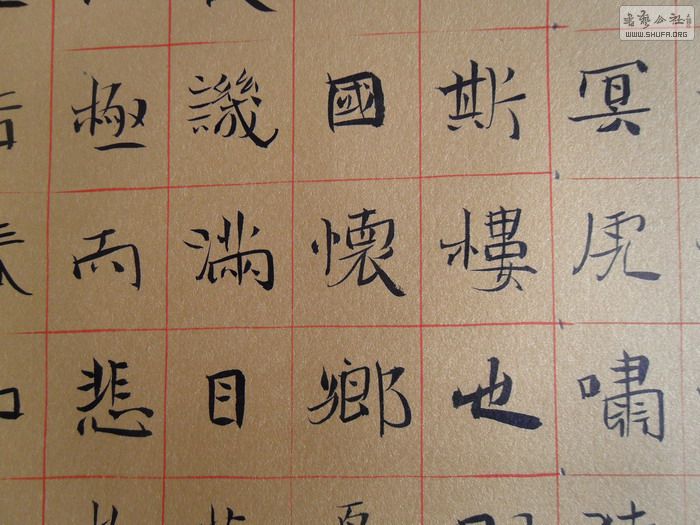 冥虎嘯
斯樓也
國懷鄉
譏滿目
極而悲
書藝公社
WWW.SHUFA.ORG